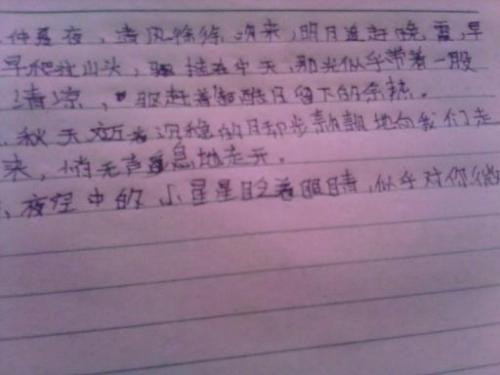 、仲夏夜，清风徐徐吹来，明月追赶晚霞，早
早爬我山头，挂在中天，那光似乎带着一股
清凉，驱赶着酷日留下的余热。
、秋天迈着沉稳的脚步款款地向我们走
来，悄无声息地走开。
、夜空中的小星星眨着眼睛，似乎对你微